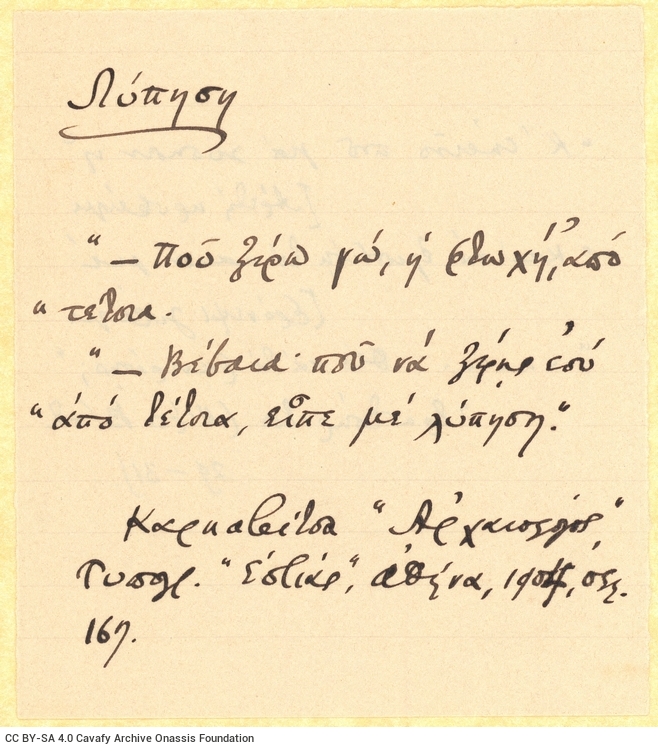 Λύπηση
"— Ποῦ ξέρω γώ, ἡ φτωχή, ἀπό
"τέτοια.
"— Βέβαια· ποῦ νά ξέρῃς ἐσύ
"ἀπό τέτοια, εἶπε μέ λύπηση."
Καρκαβίτσα "Ἀρχαιολόγος",
Τυπογρ. "Ἑστίας", Ἀθήνα, 1904, σελ.
167.
CC BY-SA 4.0 Cavafy Archive Onassis Foundation